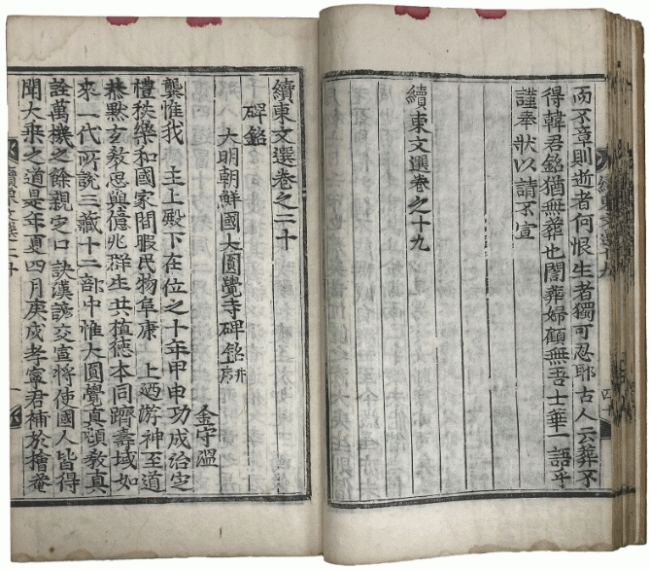 而不章則逝者何恨生者獨可忍耶古人云葬不
得韓君銘猶無葬也闇葬婦顧無吾士華一語乎
謹奉狀以請不宣
續東文選卷之十九
續東文選卷之二十
碑銘
大明朝鮮國大圓覺寺碑銘并序
金守溫
龔惟我 主上殿下在位之十年甲申功成治定
禮秩樂和國家閒暇民物阜康 上迺游神至道
恭默玄教思與億兆群生共植德本同躋壽域如
來一代所說三藏十二部中惟大圓覺真頓教真
詮萬機之餘親定口訣漢諺交宣將使國人皆得
聞大乘之道是年夏四月庚戌孝寧君補於檜菴
續東文選二十